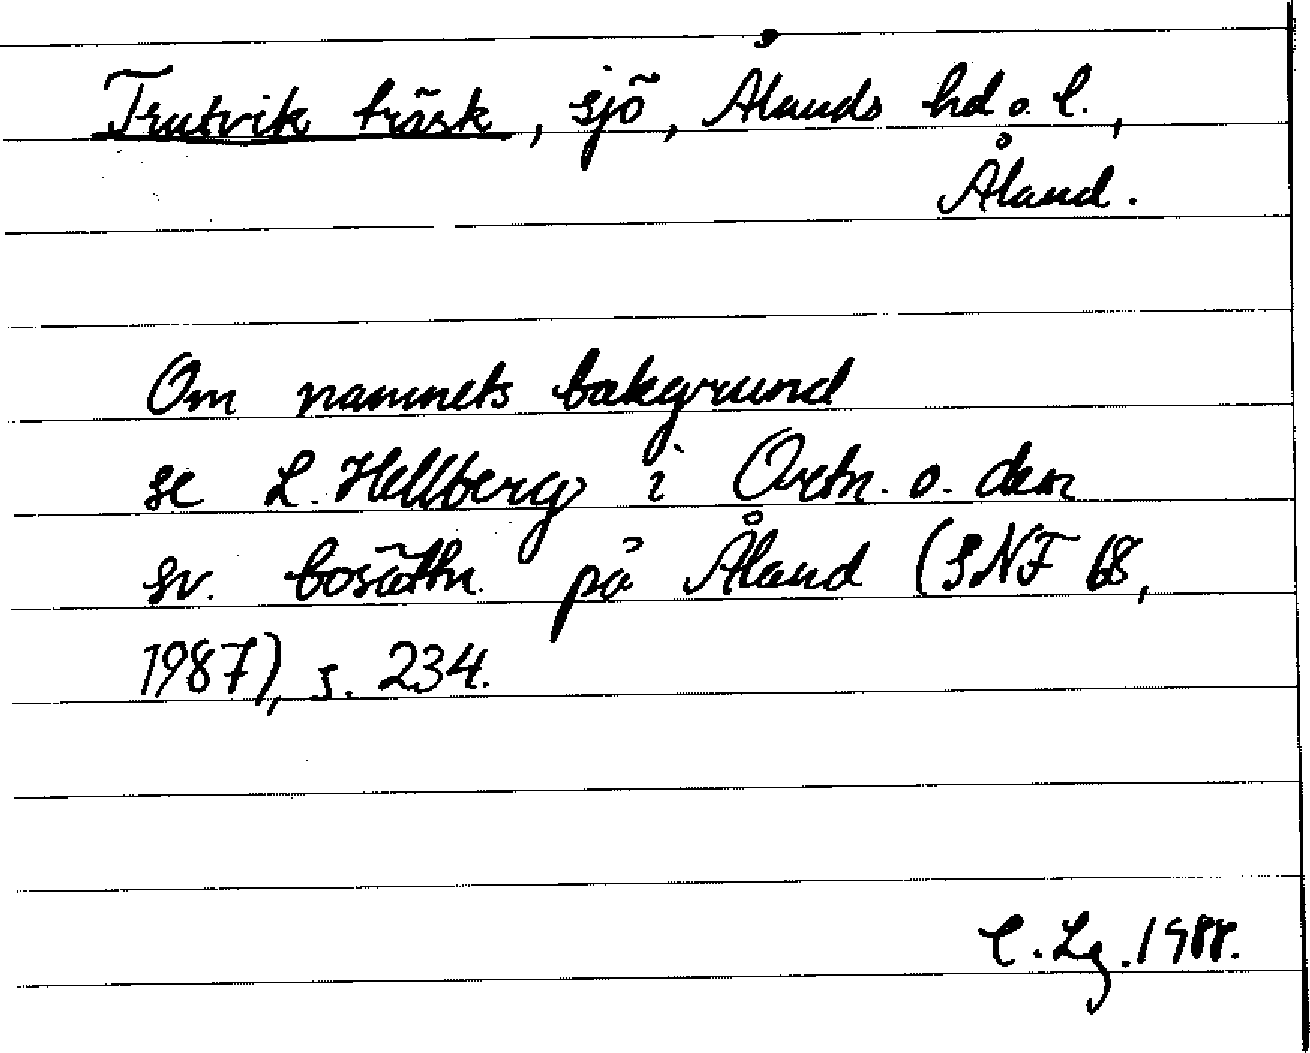 Trutvik träsk, sjö, Ålands hd o. l.,
Åland.
Om namnets bakgrund
se L. Hellberg i Ortn. o. den
sv. bosättn. på Åland (SNF 68,
1987), s. 234.
C. Lg. 1988.